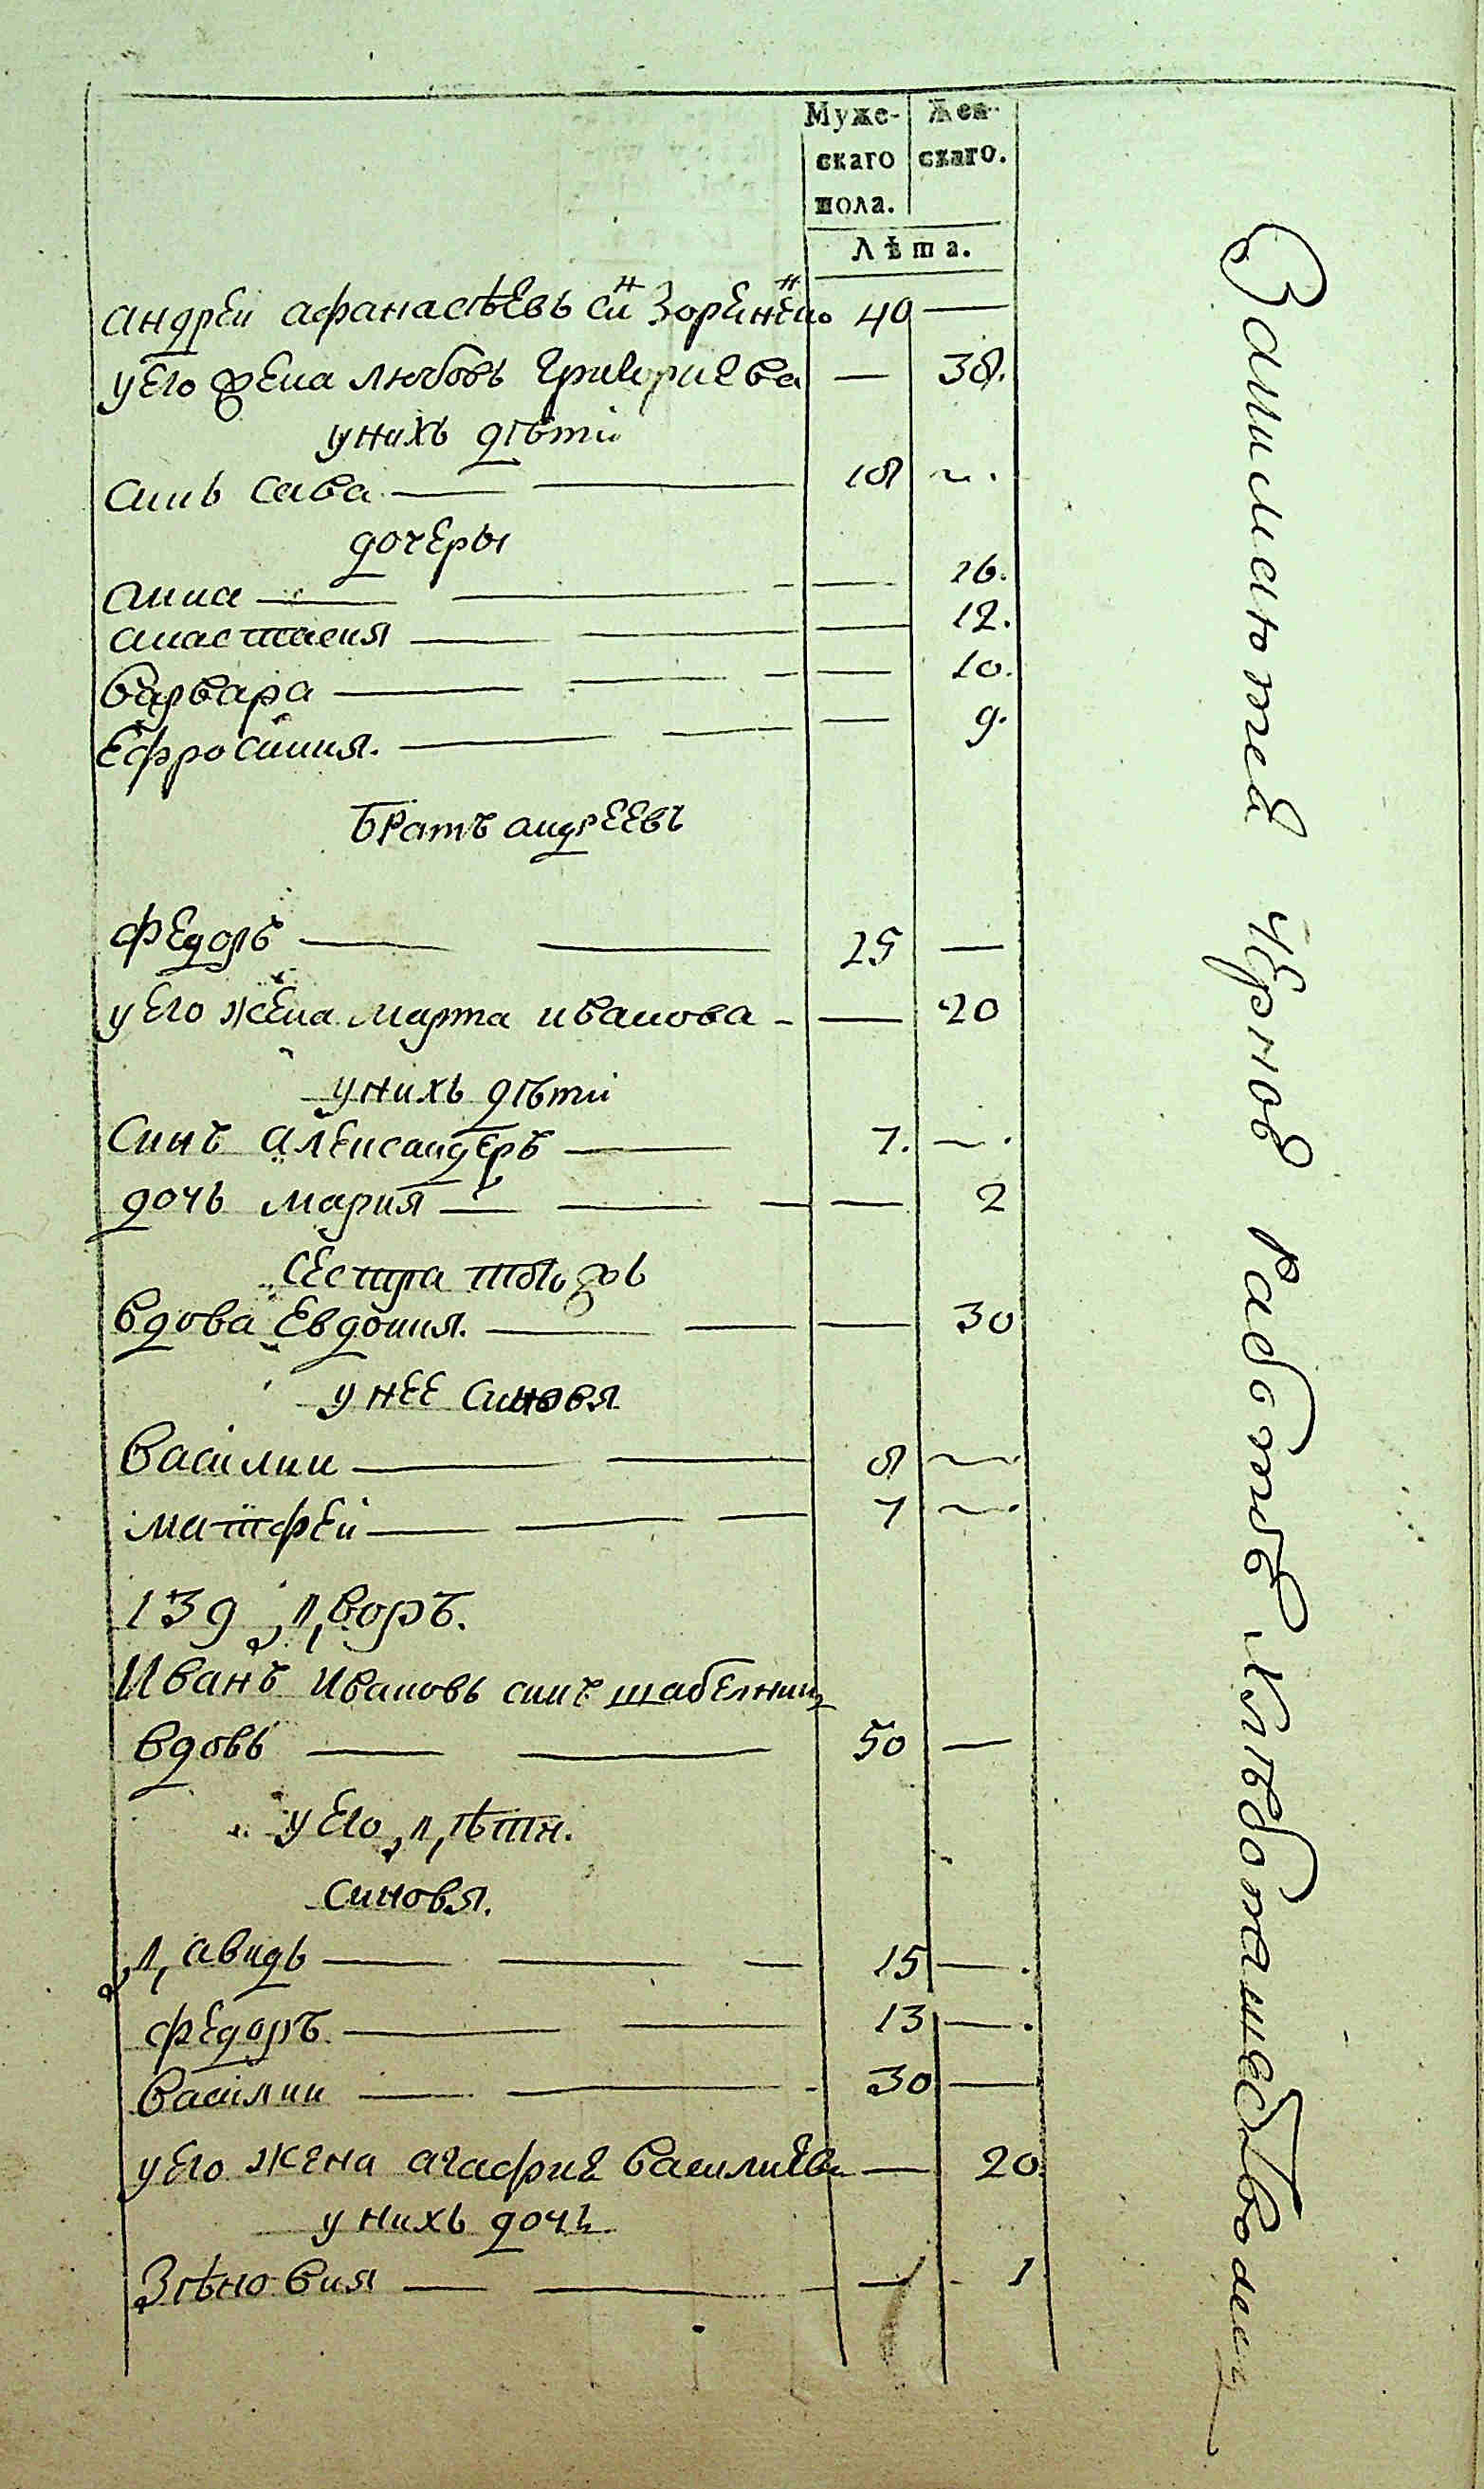 Муже- Жен-
скаго скаго.
пола.
Лѣта.
андреи афанасѣевъ сн зоренко 40 —
у его жена любовь григориева — 38.
у нихъ дѣти
синъ сава — 18 ~.
дочеры
анна — 16.
анастасия — 12.
варвара — 10.
Ефросиния. — 9.
Братъ андреевъ
Федоръ — 25 —
у его жена марта иванова — 20
у нихъ дѣти
синъ александеръ — 7. ~.
дочь мария — 2
сестра
вдова Евдокия. — 30
у нее синовя
василии — 8 ~
матфеи — 7 ~.
139 дворъ.
Иванъ Ивановъ синъ шабелник
вдовъ — 50 —
у его дѣти.
синовя.
давидъ — 15 —.
федоръ — 13 —.
василии — 30 —
у его жена агафия василиева — 20.
у нихъ дочь
Зѣновия — 1
Занимаются черной работой хлебопашеством